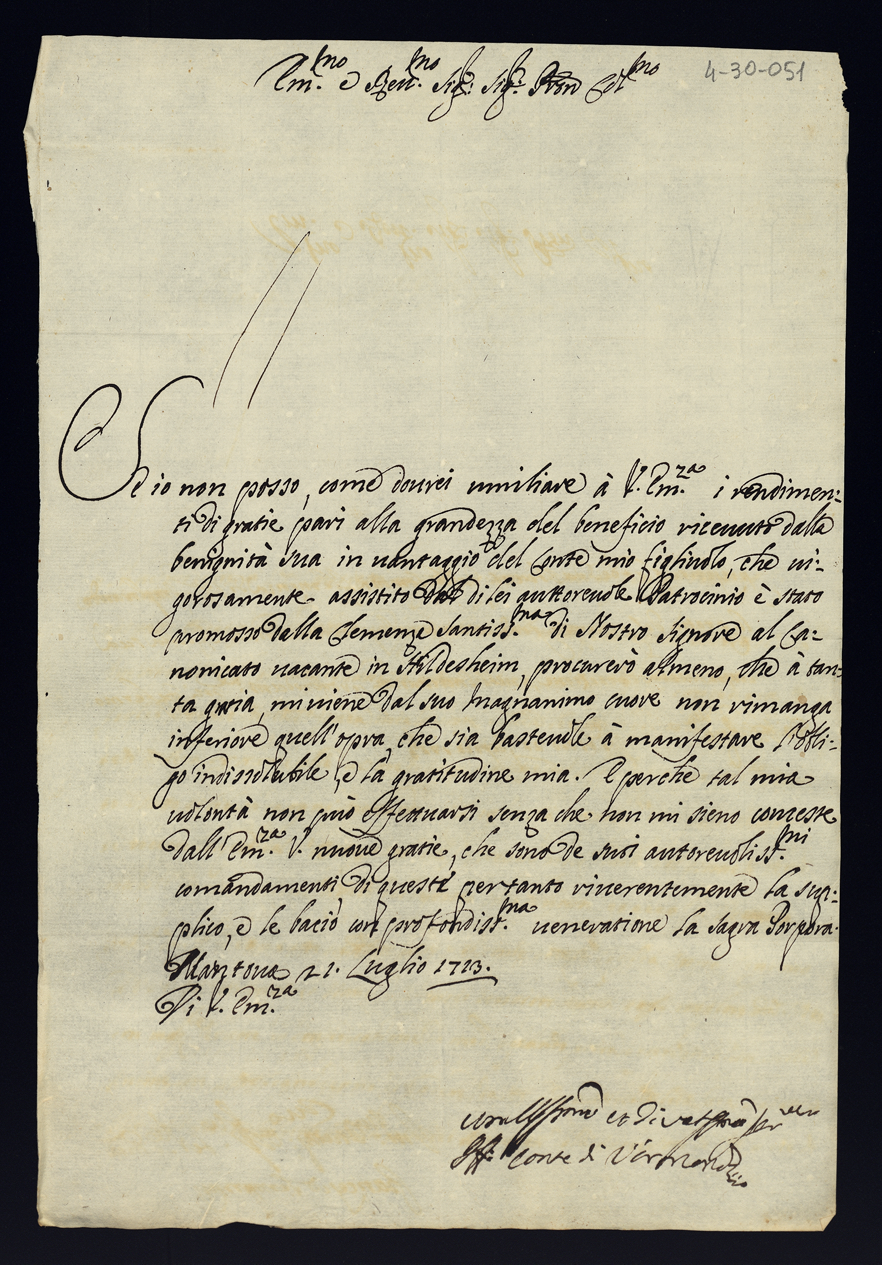 4-30-051
Em.mo e Reu.mo Sig.r Sig.r Pron Col.mo
Se io non posso, come dourei umiliare à V. Em.za i rendimen:
ti di gratie pari alla grandezza del beneficio riceuuto dalla
benignità sua in uantaggio del Conte mio figliuolo, che ui:
gorosamente assistito dal di lei auttoreuole Patrocinio è stato
promosso dalla Clemenza Santiss.ma di Nostro Signore al Ca:
nonicato uacante in Hildesheim, procurerò almeno, che à tan:
ta gratia, mi uiene dal suo magnanimo cuore non rimanga
inferiore quell'opra, che sia basteuole à manifestare l'obli:
go indissolubile, e la gratitudine mia. E perche tal mia
uolontà non può effettuarsi senza che non mi sieno concesse
dall'Em.za V. nuoue gratie, che sono de suoi autoreuoliss.mi
comandamenti di queste pertanto riuerentemente la sup:
plico, e le bacio con profondiss.ma ueneratione la Sagra Porpora.
Mantoua 21. Luglio 1713.
Di V. Em.za
et
Conte di